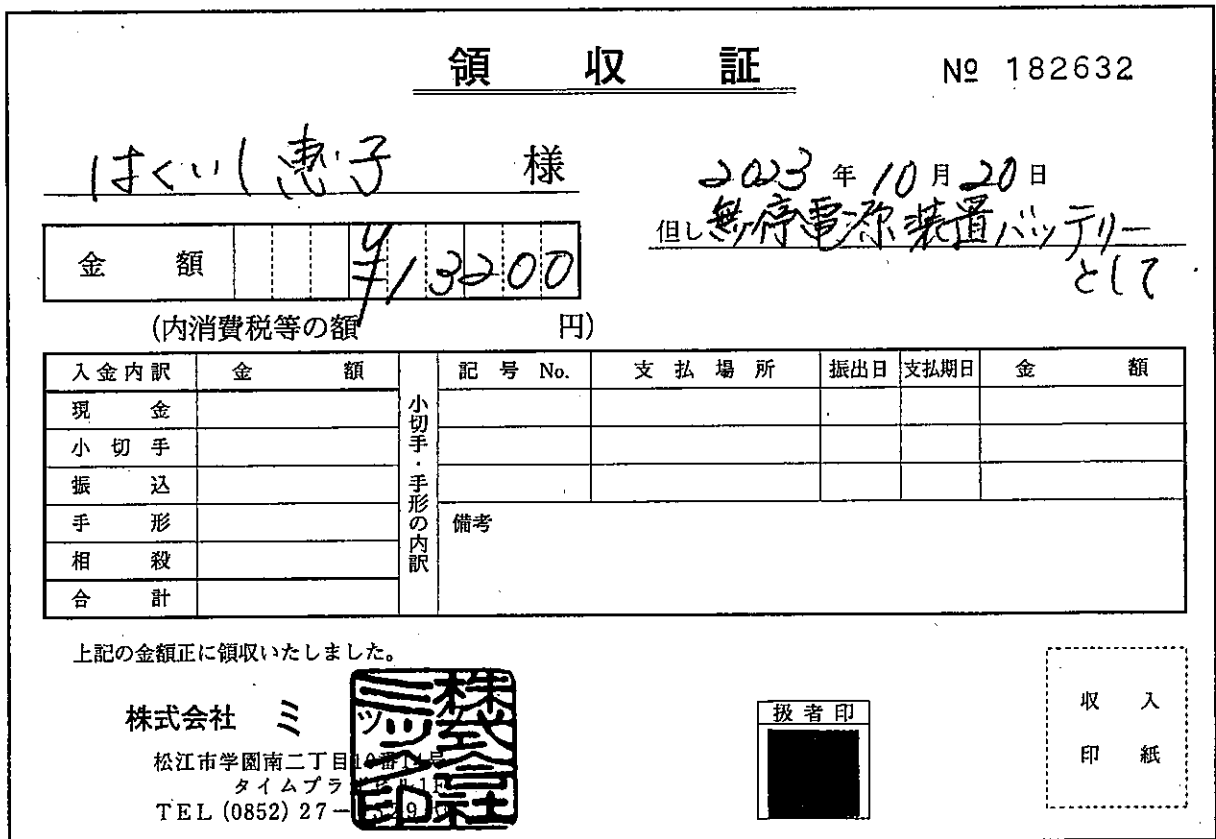 領収証
№ 182632
はくいし恵子 様
2023年10月20日
但し 無停電源装置バッテリー
として
金額 ¥13200
(内消費税等の額 円)
入金内訳 金額
現金
小切手
振込
手形
相殺
合計
小切手・手形の内訳
記号 No. 支払場所 振出日 支払期日 金額
備考
上記の金額正に領収いたしました。
株式会社 ミック
松江市学園南二丁目10番14号
タイムプラザビル1F
TEL (0852) 27-
株式会社ミック印
扱者印
収入
印紙